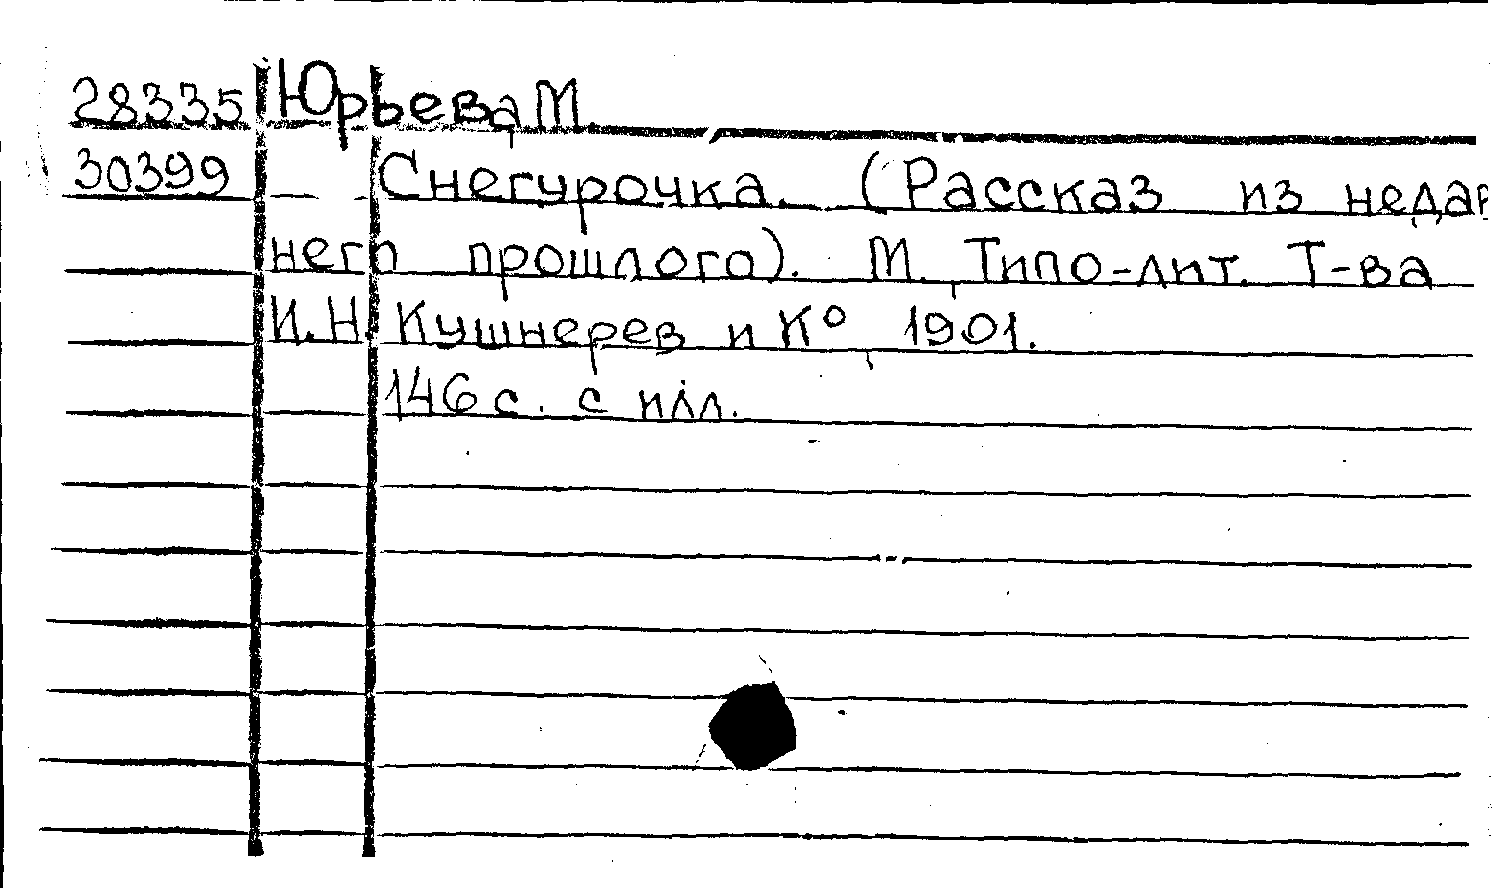 28335 Юрьева М.
30399 Снегурочка. (Рассказ из недав
него прошлого). М. Типо-лит. Т-ва
И.Н. Кушнерев и К° 1901.
146 с. с илл.